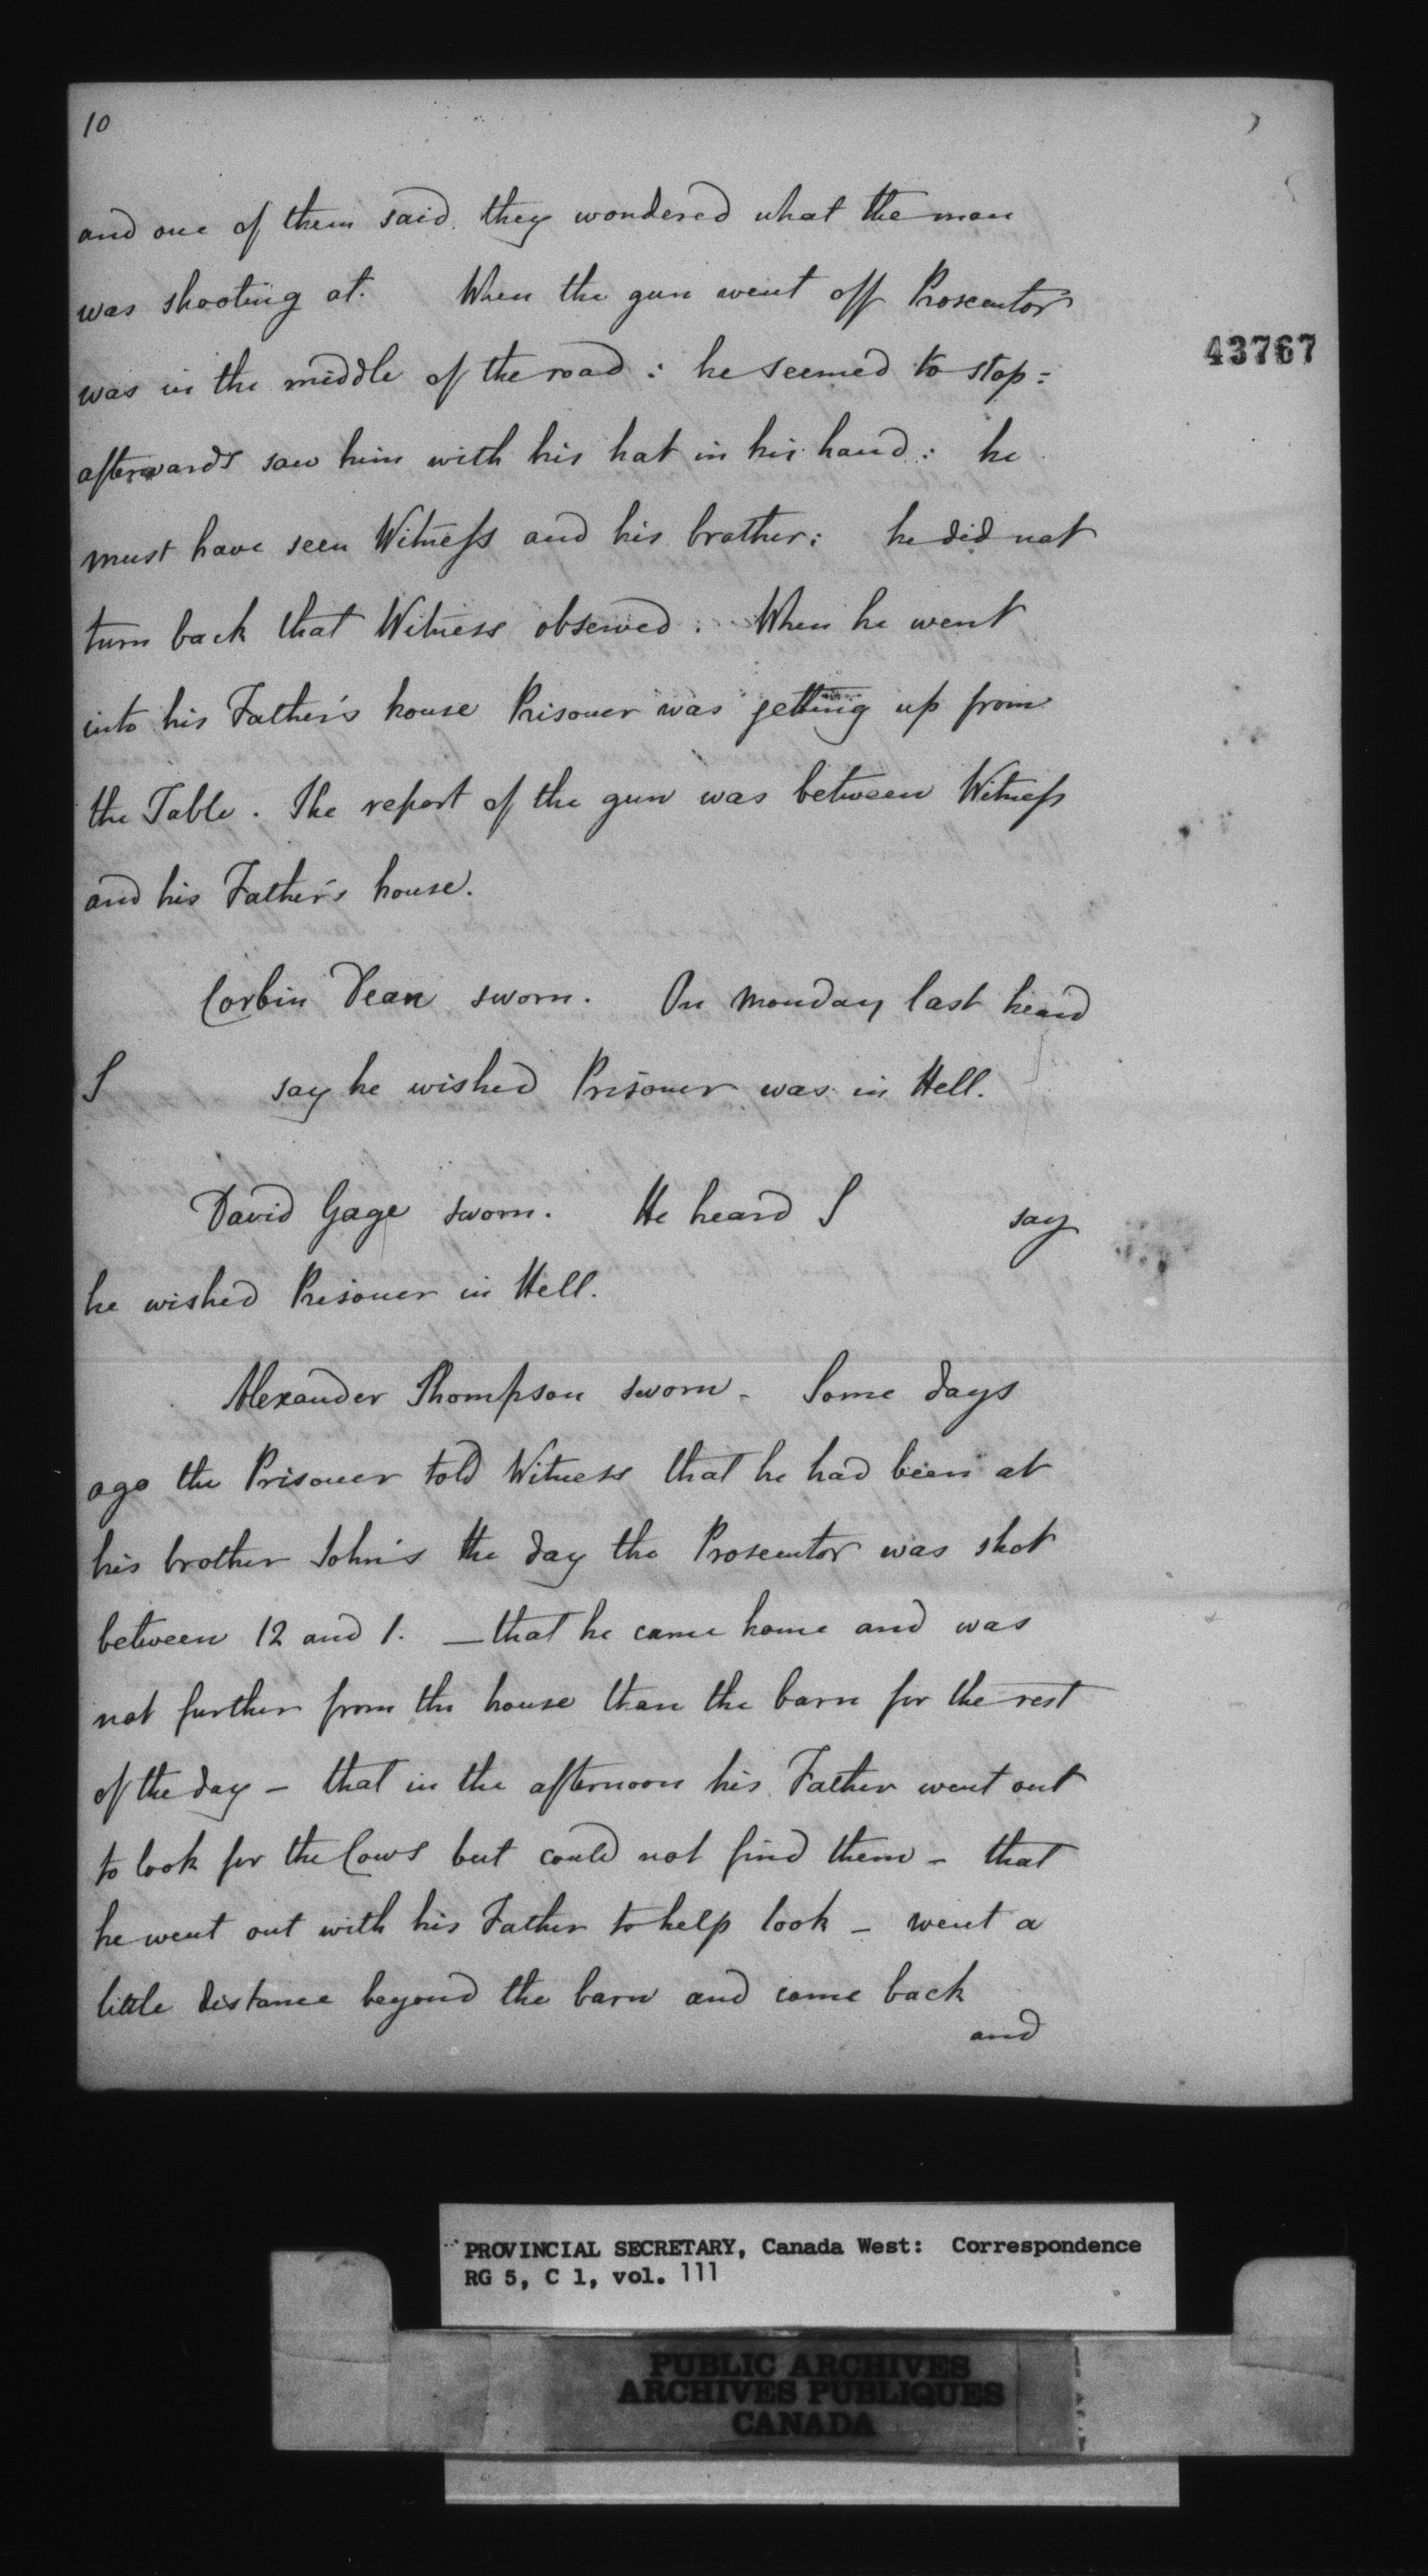 10
and one of them said they wondered what the man
was shooting at. When the gun went off Prosecutor
43767
was in the middle of the road : he seemed to stop =
afterwards saw him with his hat in his hand : he
must have seen Witness and his brother : he did not
turn back that Witness observed . When he went
into his Father's house Prisoner was getting up from
the Table . The report of the gun was between Witness
and his Father's house.
Corbin Dean sworn. On Monday last heard
S say he wished Prisoner was in Hell.
David Gage sworn. He heard S say
he wished Prisoner in Hell.
Alexander Thompson sworn - Some days
ago the Prisoner told Witness that he had been at
his brother John's the day the Prosecutor was shot
between 12 and 1. — that he came home and was
not further from the house than the barn for the rest
of the day – that in the afternoon his Father went out
to look for the Cows but could not find them – that
he went out with his Father to help look – went a
little distance beyond the barn and came back
and
PROVINCIAL SECRETARY, Canada West: Correspondence
RG 5, C 1, vol. 111
PUBLIC ARCHIVES
ARCHIVES PUBLIQUES
CANADA